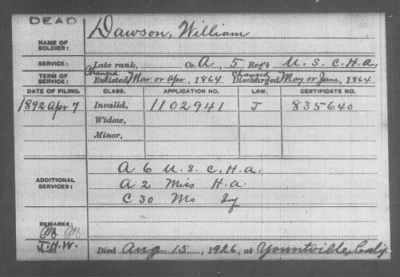 DEAD
NAME OF SOLDIER: Dawson, William
SERVICE: Late rank, Co. A, 5 Reg't U.S.C.H.A.
TERM OF SERVICE: Changed Enlisted Mar or Apr, 1864. Changed Discharged May or June, 1864
DATE OF FILING. CLASS. APPLICATION NO. LAW. CERTIFICATE NO.
1892 Apr 7 Invalid, 1102941 J 835640
Widow,
Minor,
ADDITIONAL SERVICES: A 6 U.S.C.H.A.
A 2 Miss H.A.
C 30 Mo Inf
REMARKS:
J.H.W. Died Aug 15, 1926, at Yountville, Calif.